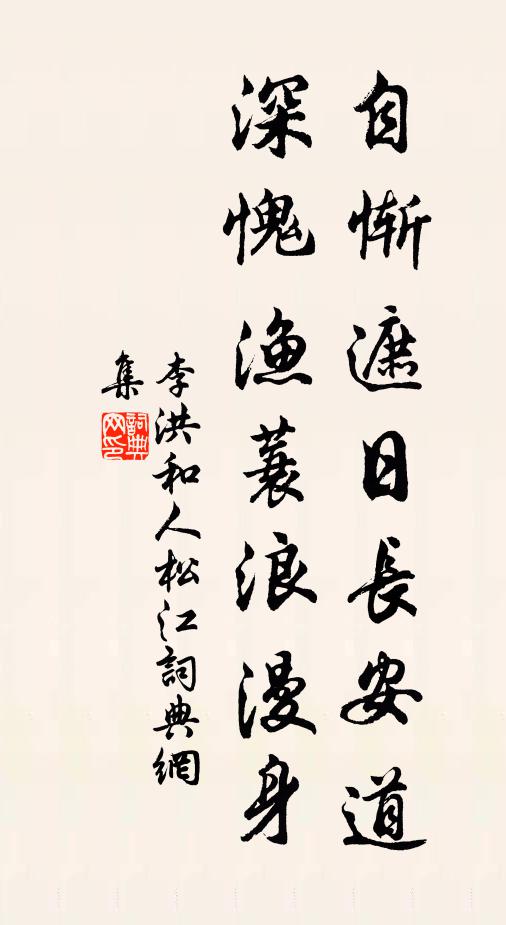 自慚遮日長安道
深愧漁蓑浪漫身
李洪和人松江詞典網
集
詞典
网印